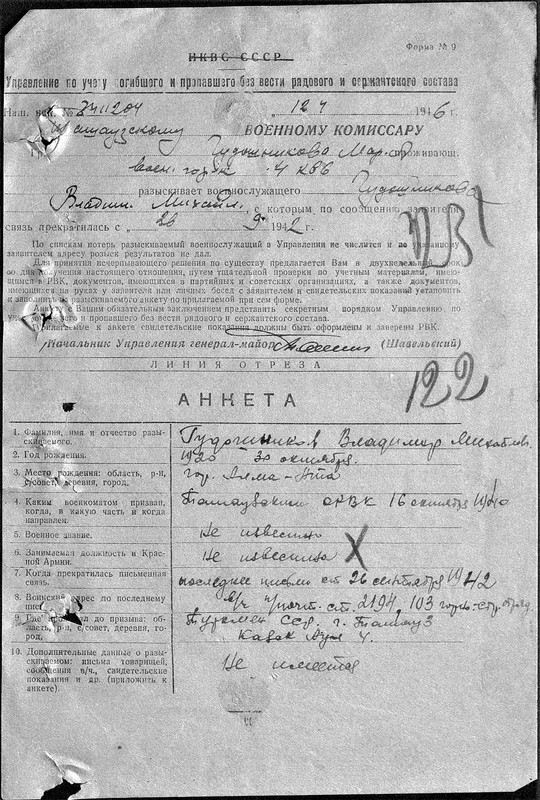 НКВС СССР
Форма № 9
Управление по учету погибшего и пропавшего без вести рядового и сержантского состава
Наш. исх. №
„12 4 1946 г.
Ташаузскому ВОЕННОМУ КОМИССАРУ
Гр. Гудошникова Мар. проживающ.
разыскивает военнослужащего Гудошникова
Владим. Михаил. с которым по сообщению заявителя
связь прекратилась с „26 9 1942 г.
123
По спискам потерь разыскиваемый военнослужащий в Управлении не числится и по указанному
заявителем адресу розыск результатов не дал.
Для принятия исчерпывающего решения по существу предлагается Вам в двухнедельный срок
со дня получения настоящего отношения, путем тщательной проверки по учетным материалам, имею-
щимся в РВК, документов, имеющихся в партийных и советских организациях, а также документов,
имеющихся на руках у заявителя или личных бесед с заявителем и свидетельских показаний установить
и заполнить на разыскиваемого анкету по прилагаемой при сем форме.
Анкету с Вашим обязательным заключением представить секретным порядком Управлению по
учету погибшего и пропавшего без вести рядового и сержантского состава.
Прилагаемые к анкете свидетельские показания должны быть оформлены и заверены РВК.
Начальник Управления генерал-майор (Шавельский)
ЛИНИЯ ОТРЕЗА
122
АНКЕТА
1. Фамилия, имя и отчество разы-
скиваемого.
Гудошников Владимир Михайлов.
2. Год рождения.
1920 30 октября.
3. Место рождения: область, р-н,
с/совет, деревня, город.
гор. Алма-Ата
4. Каким военкоматом призван,
когда, в какую часть и когда
направлен.
Ташаузским ОРВК 16 октября 1940
5. Военное звание.
Не известно
6. Занимаемая должность и Крас-
ной Армии.
Не известна
7. Когда прекратилась письменная
связь.
последнее письмо от 26 сентября 1942
8. Воинский адрес по последнему
письму
в/ч п/почт. ст. 2194, 103 отряд
9. Где проживал до призыва: об-
ласть, р-н, с/совет, деревня, го-
род,
Туркмен ССР. г. Ташауз
4.
10. Дополнительные данные о разы-
скиваемом: письма товарищей,
сообщения п/ч., свидетельские
показания и др. (приложить к
анкете).
Не имеется